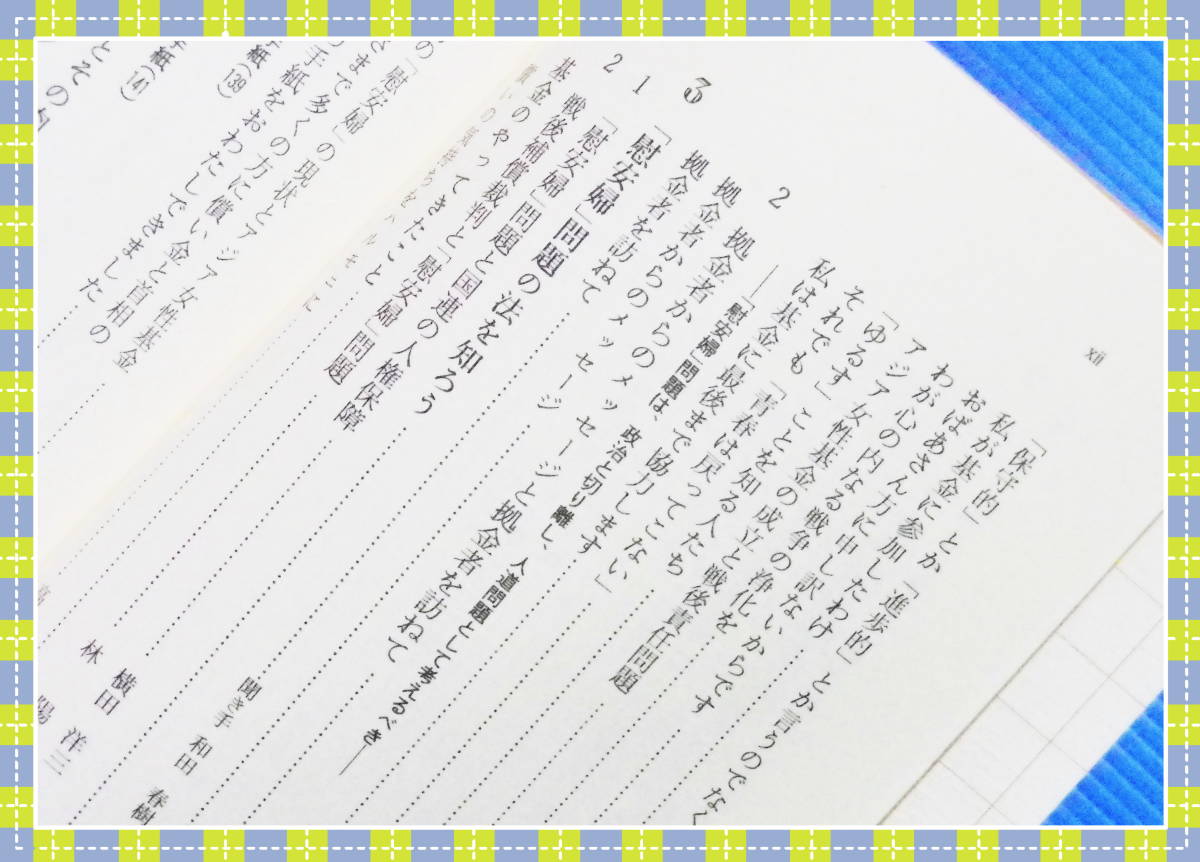 xii
「保守的」とか「進歩的」とか言うのでなく
私が基金に参加したわけ
おばあさん方に申し訳ないからです
わが心の内なる戦争の浄化
アジア女性基金の成立と戦後責任問題
「ゆるす」ことを知る人たち
それでも「青春は戻ってこない」
私は基金に最後まで協力します
——「慰安婦」問題は、政治と切り離し、人道問題として考えるべき——
聞き手 和田 春樹
2 拠金者からのメッセージと拠金者を訪ねて
拠金者からのメッセージ
拠金者を訪ねて
3 「慰安婦」問題の法を知ろう
1 「慰安婦」問題と国連の人権保障 横田 洋三
2 戦後補償裁判と「慰安婦」問題 林 陽
基金のやってきたこと
の「慰安婦」の現状とアジア女性基金
まで多くの方に償い金と首相の
手紙をおわたしできました
紙(139)
紙(141)
とその